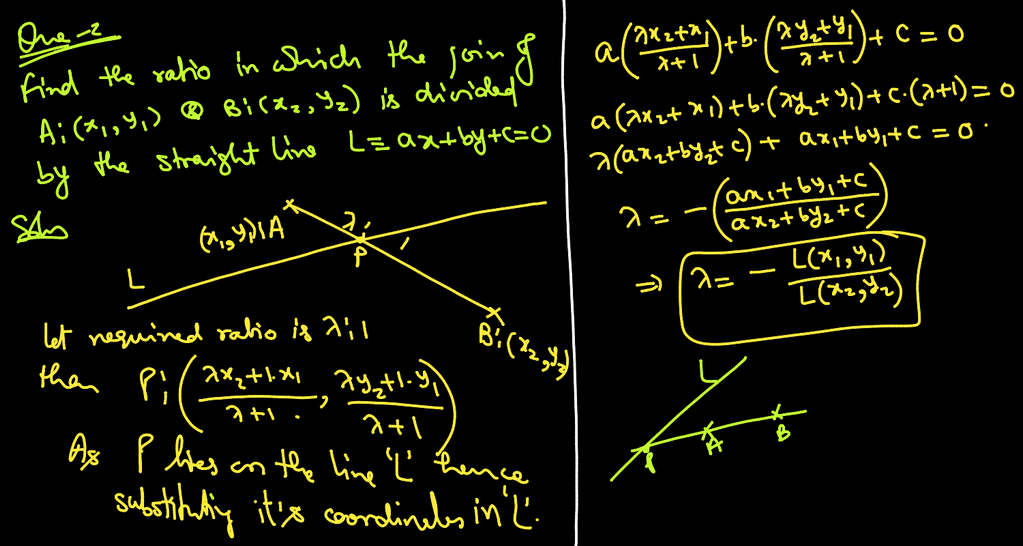 Que-2
Find the ratio in which the join of
A:(x₁,y₁) & B:(x₂,y₂) is divided
by the straight line L≡ax+by+c=0
Soln
(x₁,y₁):A
λ:
1
P
L
B:(x₂,y₂)
let required ratio is λ:1
then P:((λx₂+1·x₁)/(λ+1), (λy₂+1·y₁)/(λ+1))
As P lies on the line 'L' hence
substituting it's coordinates in 'L'.
a((λx₂+x₁)/(λ+1))+b·((λy₂+y₁)/(λ+1))+c=0
a(λx₂+x₁)+b·(λy₂+y₁)+c·(λ+1)=0
λ(ax₂+by₂+c)+ax₁+by₁+c=0·
λ=-((ax₁+by₁+c)/(ax₂+by₂+c))
⇒ λ=-L(x₁,y₁)/L(x₂,y₂)
L
P
A
B